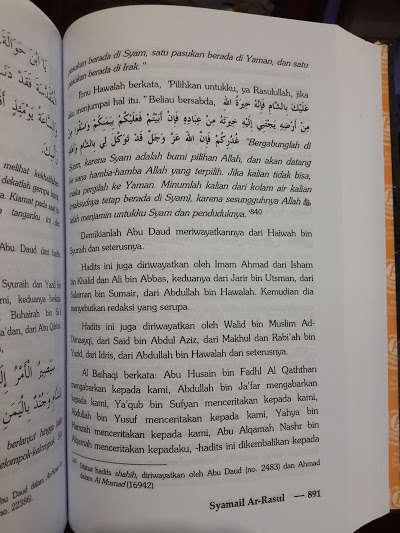 pasukan berada di Syam, satu pasukan berada di Yaman, dan satu
pasukan berada di Irak."
Ibnu Hawalah berkata, "Pilihkan untukku, ya Rasulullah, jika
aku menjumpai hal itu." Beliau bersabda,
عَلَيْكَ بِالشَّامِ فَإِنَّهُ خِيرَةُ اللهِ
مِنْ أَرْضِهِ يَجْتَبِي إِلَيْهِ خِيرَتَهُ مِنْ عِبَادِهِ فَإِنْ أَبَيْتُمْ فَعَلَيْكُمْ بِيَمَنِكُمْ وَاسْقُوا مِنْ
غُدُرِكُمْ فَإِنَّ اللهَ عَزَّ وَجَلَّ قَدْ تَوَكَّلَ لِي بِالشَّامِ وَأَهْلِهِ "Bergabunglah di
Syam, karena Syam adalah bumi pilihan Allah, dan akan datang
ke sana hamba-hamba Allah yang terpilih. Jika kalian tidak bisa,
maka pergilah ke Yaman. Minumlah kalian dari kolam air kalian
(maksudnya tetap berada di Syam), karena sesungguhnya Allah
telah menjamin untukku Syam dan penduduknya."840
Demikianlah Abu Daud meriwayatkannya dari Haiwah bin
Syuraih dan seterusnya.
Hadits ini juga diriwayatkan oleh Imam Ahmad dari Isham
bin Khalid dan Ali bin Abbas, keduanya dari Jarir bin Utsman, dari
Sulaiman bin Sumair, dari Abdullah bin Hawalah. Kemudian dia
menyebutkan redaksi yang serupa.
Hadits ini juga diriwayatkan oleh Walid bin Muslim Ad-
Dimasyqi, dari Said bin Abdul Aziz, dari Makhul dan Rabi'ah bin
Yazid, dari Idris, dari Abdullah bin Hawalah dan seterusnya.
Al Baihaqi berkata: Abu Husain bin Fadhl Al Qaththan
mengabarkan kepada kami, Abdullah bin Ja'far mengabarkan
kepada kami, Ya'qub bin Sufyan menceritakan kepada kami,
Abdullah bin Yusuf menceritakan kepada kami, Yahya bin
Hamzah menceritakan kepada kami, Abu Alqamah Nashr bin
Alqamah menceritakan kepadaku, -hadits ini dikembalikan kepada
840 Status hadits shahih, diriwayatkan oleh Abu Daud (no. 2483) dan Ahmad
dalam Al Musnad (16942).
Syamail Ar-Rasul — 891